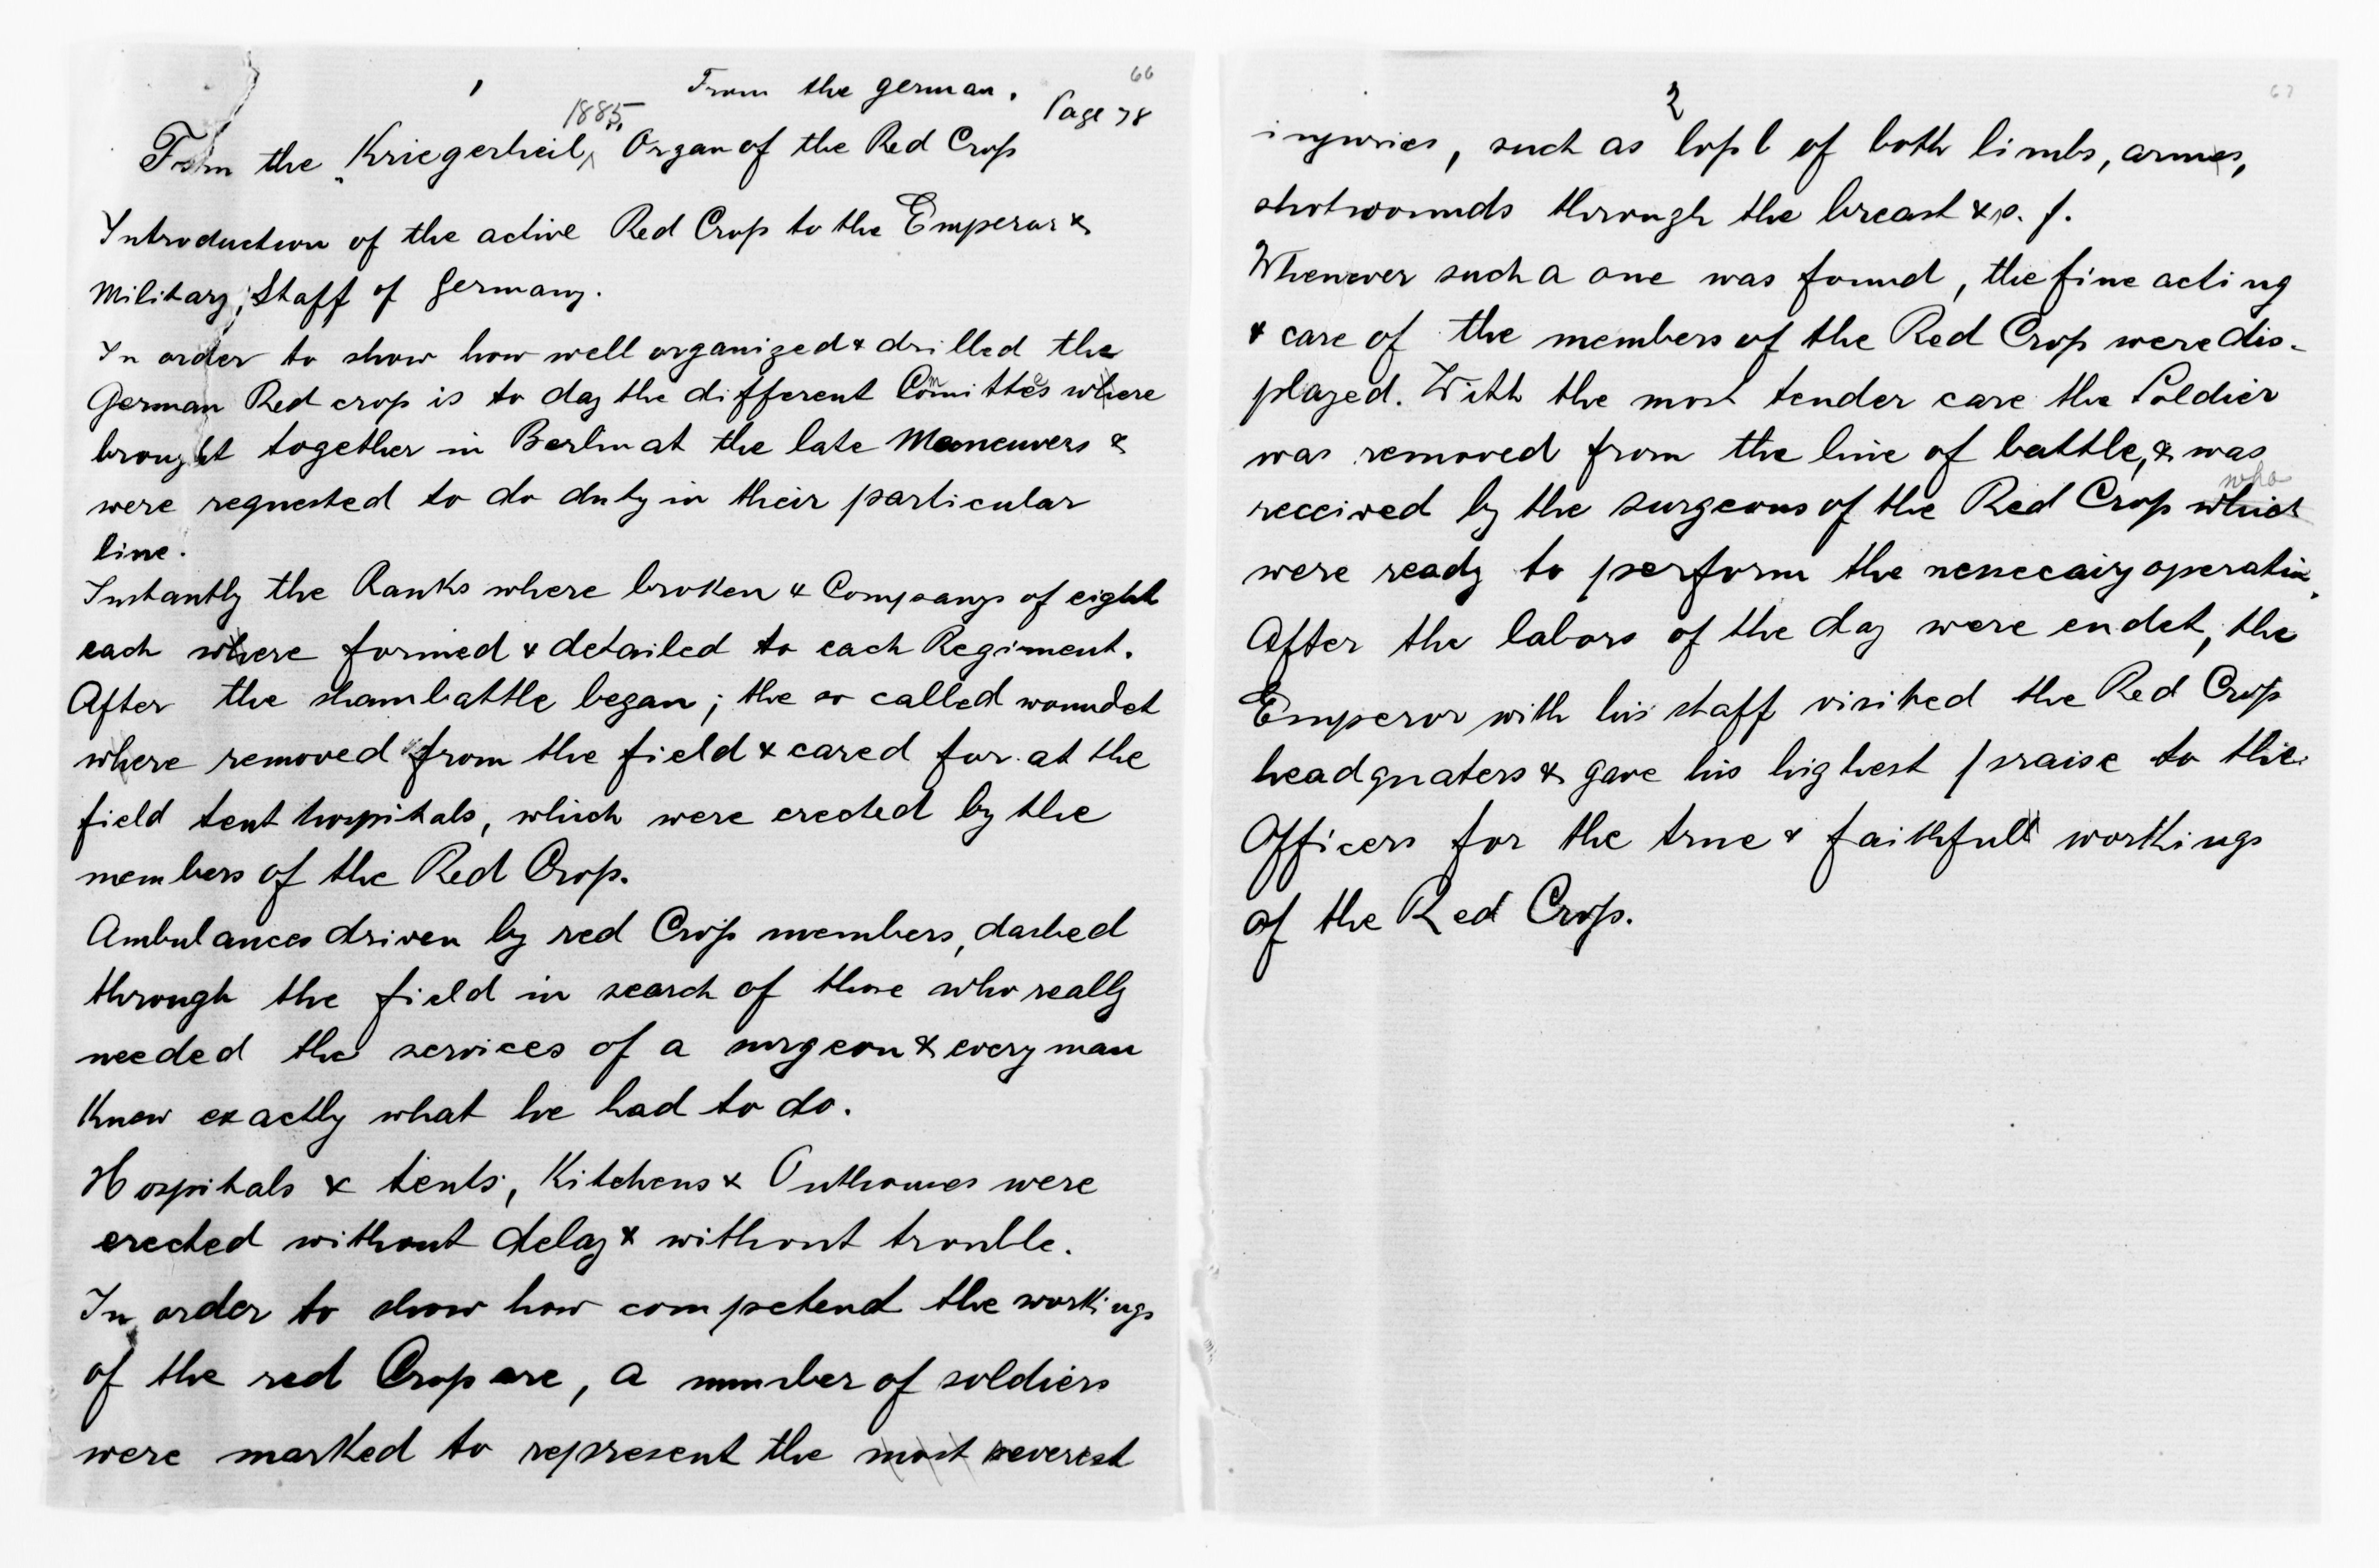 66
1 From the german.
1885. Page 78
From the „Kriegerheil, Organ of the Red Cross
Introduction of the active Red Cross to the Emperor &
Military, Staff of Germany.
In order to show how well organized & drilled the
German Red cross is to day the different Committees where
brought together in Berlin at the late Maneuvers &
were requested to do duty in their particular
line.
Instantly the Ranks where broken & Companys of eight
each where formed & detailed to each Regiment.
After the shambattle began; the so called woundet
where removed from the field & cared for at the
field tent hospitals, which were erected by the
members of the Red Cross.
Ambulances driven by red Cross members, dashed
through the field in search of those who really
needed the services of a surgeon & every man
Knew exactly what he had to do.
Hospitals & tents, Kitchens & Outhouses were
erected without delay & without trouble.
In order to show how competend the workings
of the red Cross are, a number of soldiers
were marked to represent the most severest
67
2
injuries, such as loss of both limbs, arms,
shotwounds through the breast & s. f.
Whenever such a one was found, the fine acting
& care of the members of the Red Cross were dis-
played. With the most tender care the Soldier
was removed from the line of battle, & was
who
received by the surgeons of the Red Cross which
were ready to perform the nenecairy operation.
After the labors of the day were endet, the
Emperor with his staff visited the Red Cross
headquaters & gave his highest praise to the
Officers for the true & faithfull workings
of the Red Cross.